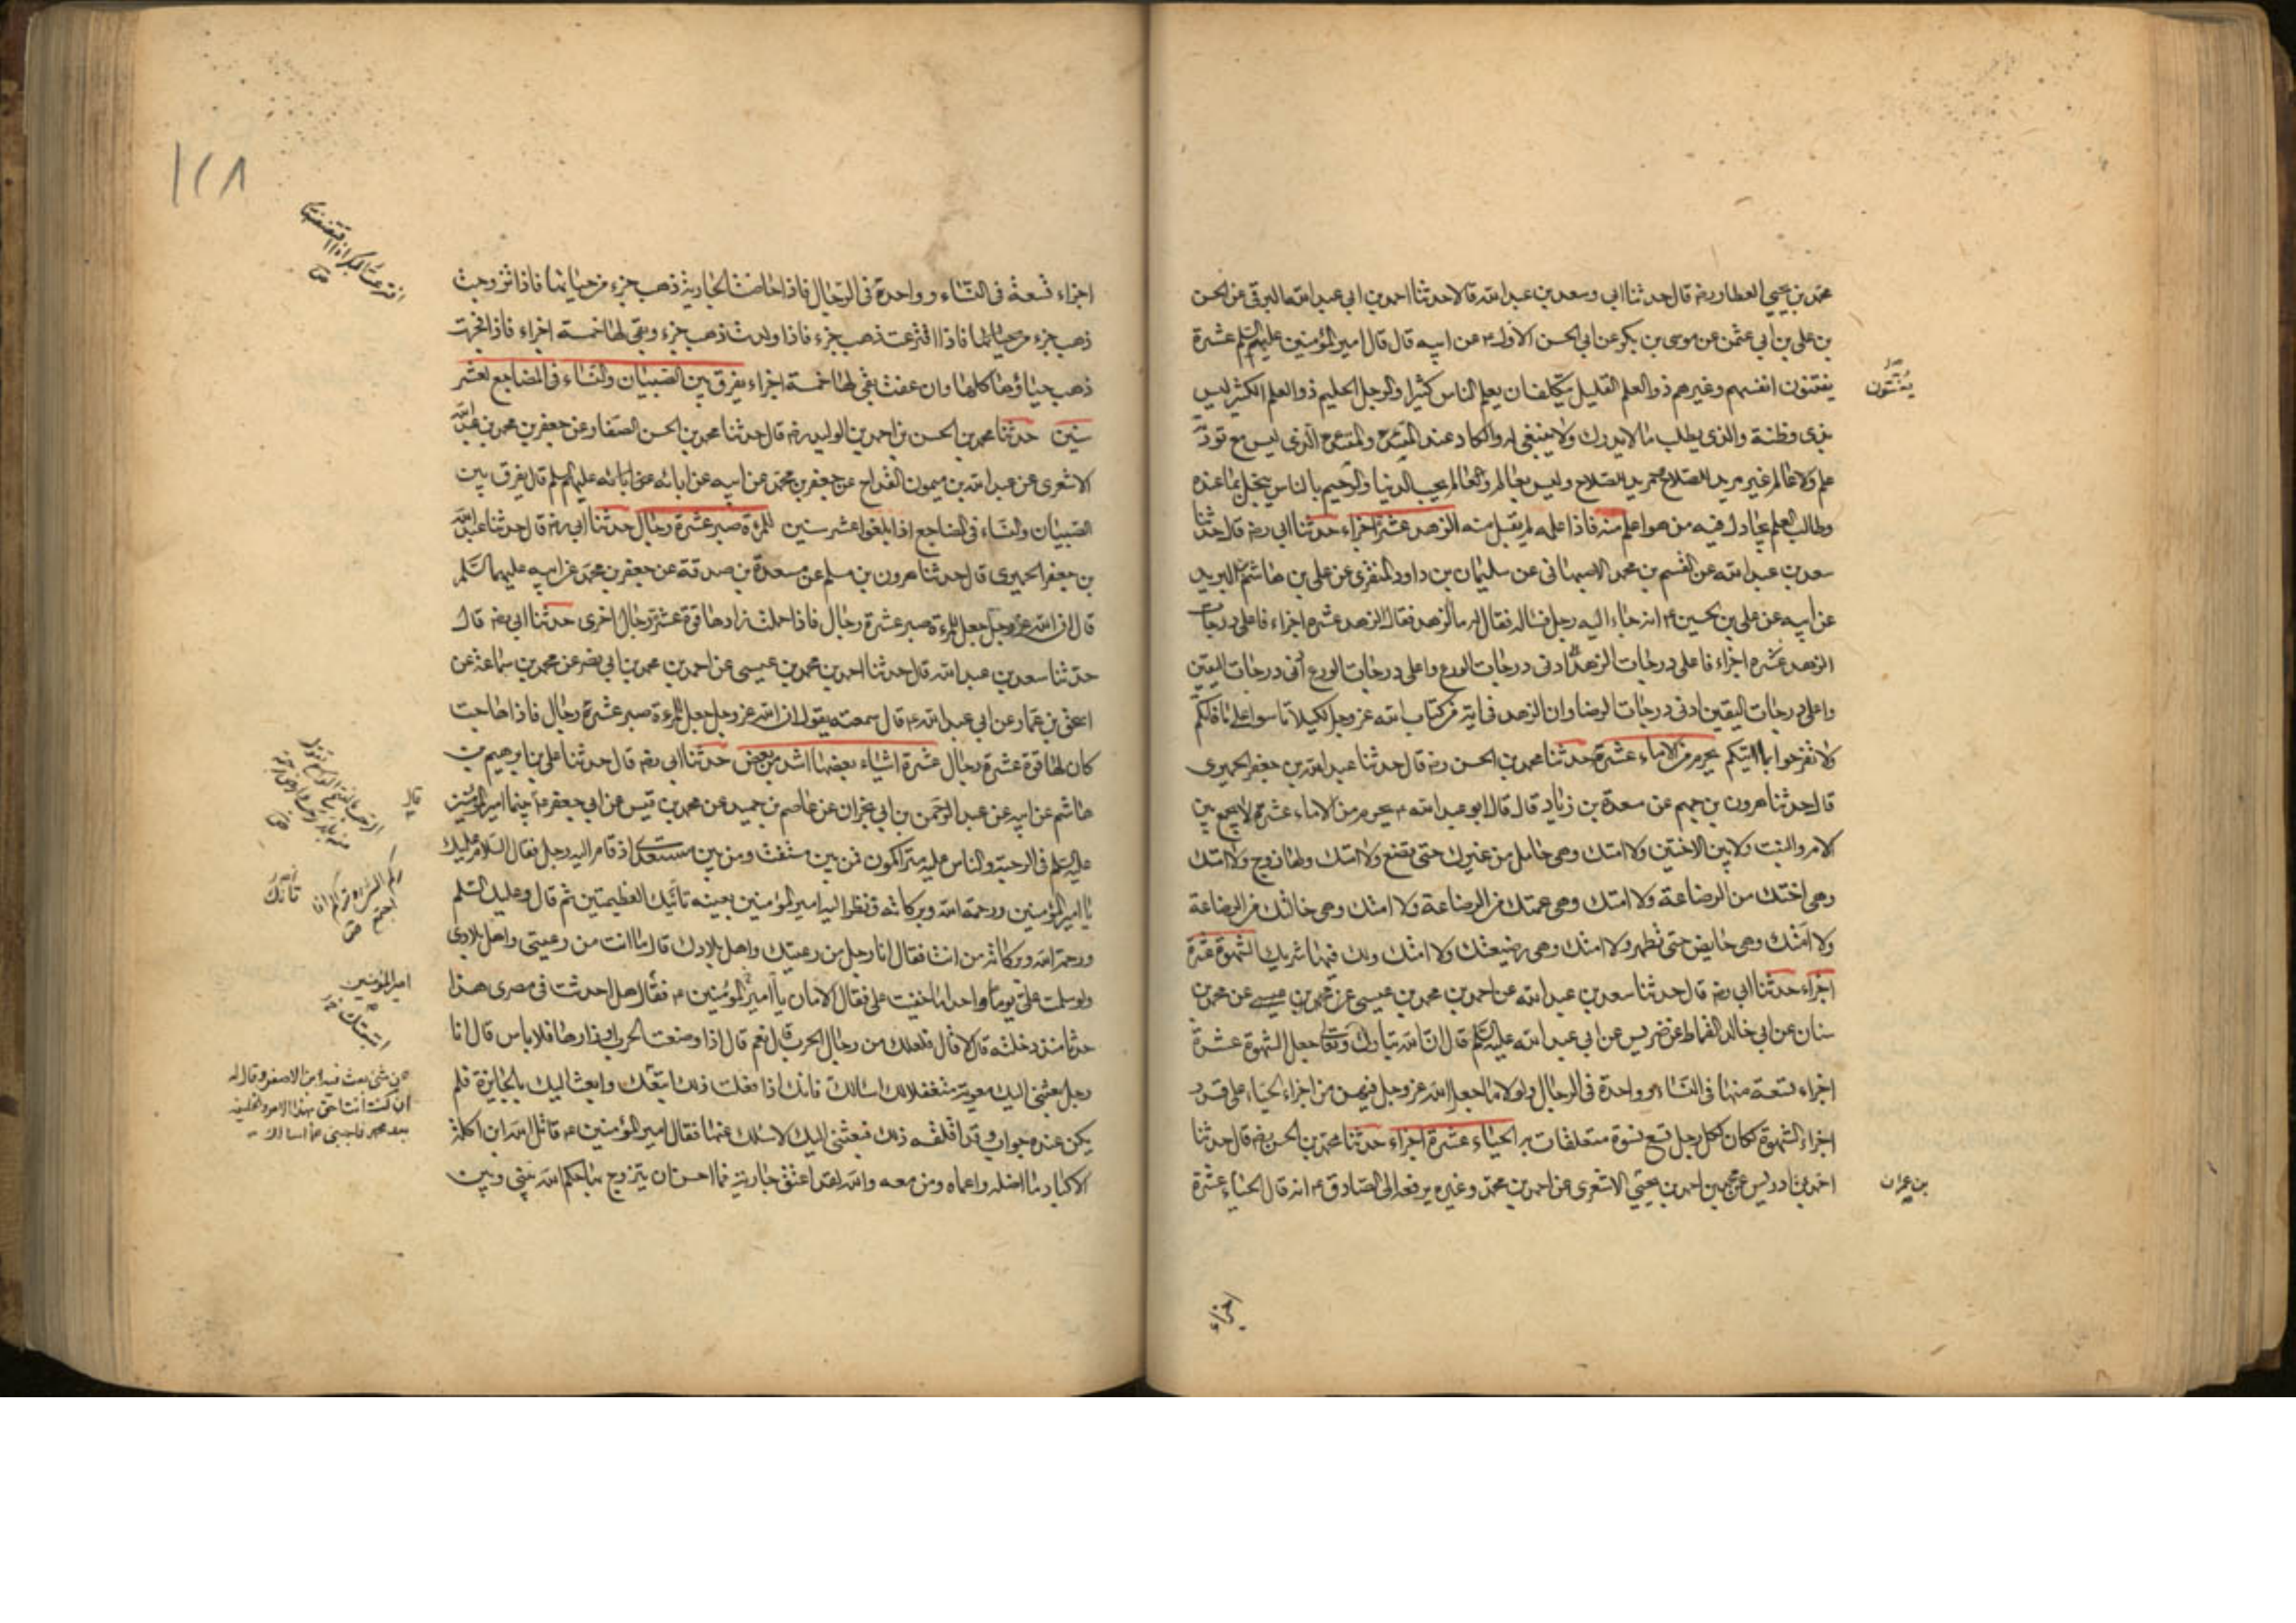 محمد بن يحيى العطار رضه قال حدثنا ابى وسعد بن عبد الله قالا حدثنا احمد بن ابى عبد الله البرقى عن الحسن
بن على بن ابى عثمن عن موسى بن بكر عن ابى الحسن الاول ع عن ابيه قال قال امير المؤمنين عليهم السلم عشرة
يفتنون انفسهم وغيرهم ذو العلم القليل يتكلف ان يعلم الناس كثيرا والرجل الحليم ذو العلم الكثير ليس
بذى فطنة والذى يطلب ما لا يدرك ولا ينبغى له والكاد عند المتئد والمتئد الذى ليس مع تؤدته
علم ولا عالم غير مريد للصلاح ومريد للصلاح وليس بعالم والعالم يحب الدنيا والرحيم بالناس يبخل بما عنده
وطالب العلم يجادل فيه من هو اعلم منه فاذا علمه لم يقبل منه الزهد عشرة اجزاء حدثنا ابى رضه قال حدثنا
سعد بن عبد الله عن القسم بن محمد الاصبهانى عن سليمان بن داود المنقرى عن على بن هاشم بن البريد
عن ابيه عن على بن الحسين ع انه جاء اليه رجل فساله فقال له ما الزهد فقال الزهد عشرة اجزاء فاعلى درجات
الزهد عشرة اجزاء فاعلى درجات الزهد ادنى درجات الورع واعلى درجات الورع ادنى درجات اليقين
واعلى درجات اليقين ادنى درجات الرضا وان الزهد فى اية من كتاب الله عز وجل لكيلا تاسوا على ما فاتكم
ولا تفرحوا بما اتيكم يحرم من الاماء عشرة حدثنا محمد بن الحسن رضه قال حدثنا عبد الله بن جعفر الحميرى
قال حدثنا هرون بن مسلم عن مسعدة بن زياد قال قال ابو عبد الله ع يحرم من الاماء عشرة لا يجمع بين
الام والبنت ولا بين الاختين ولا امتك وهى حامل من غيرك حتى تضع ولا امتك ولها زوج ولا امتك
وهى اختك من الرضاعة ولا امتك وهى عمتك من الرضاعة ولا امتك وهى خالتك من الرضاعة
ولا امتك وهى حايض حتى تطهر ولا امتك وهى رضيعتك ولا امتك ولك فيها شريك الشهوة عشرة
اجزاء حدثنا ابى رضه قال حدثنا سعد بن عبد الله عن احمد بن محمد بن عيسى عن محمد بن
سنان عن ابى خالد القماط عن ضريس عن ابى عبد الله عليه السلم قال ان الله تبارك وتعالى جعل الشهوة عشرة
اجزاء تسعة منها فى النساء وواحدة فى الرجال ولولا ما جعل الله عز وجل فيهن من اجزاء الحياء على قدر
اجزاء الشهوة لكان لكل رجل تسع نسوة متعلقات به الحياء عشرة اجزاء حدثنا محمد بن الحسن رضه قال حدثنا
احمد بن ادريس عن محمد بن احمد بن يحيى الاشعرى عن احمد بن محمد وغيره يرفعه الى الصادق ع انه قال الحياء عشرة
يفتنون
بن عمران
اجزاء
١٢٨
اجزاء تسعة فى النساء وواحدة فى الرجال فاذا حاضت الجارية ذهب جزء من حيائها فاذا تزوجت
ذهب جزء من حيائها فاذا افترعت ذهب جزء فاذا ولدت ذهب جزء وبقى لها خمسة اجزاء فاذا فجرت
ذهب حياؤها كلها وان عفت بقى لها خمسة اجزاء يفرق بين الصبيان والنساء فى المضاجع لعشر
سنين حدثنا محمد بن الحسن بن احمد بن الوليد رضه قال حدثنا محمد بن الحسن الصفار عن جعفر بن محمد بن عبد الله
الاشعرى عن عبد الله بن ميمون القداح عن جعفر بن محمد عن ابيه عن ابائه عليهم السلم قال يفرق بين
الصبيان والنساء فى المضاجع اذا بلغوا عشر سنين للمرءة صبر عشرة رجال حدثنا ابى رضه قال حدثنا عبد الله
بن جعفر الحميرى قال حدثنا هرون بن مسلم عن مسعدة بن صدقة عن جعفر بن محمد عن ابيه عليهما السلم
قال ان الله عز وجل جعل للمرءة صبر عشرة رجال فاذا حملت زادها قوة عشرة رجال اخرى حدثنا ابى رضه قال
حدثنا سعد بن عبد الله قال حدثنا احمد بن محمد بن عيسى عن احمد بن محمد بن ابى نصر عن محمد بن سماعة عن
اسحق بن عمار عن ابى عبد الله ع قال سمعته يقول ان الله عز وجل جعل للمرءة صبر عشرة رجال فاذا هاجت
كان لها قوة عشرة رجال عشرة اشياء بعضها اشد من بعض حدثنا ابى رضه قال حدثنا على بن ابرهيم بن
هاشم عن ابيه عن عبد الرحمن بن ابى نجران عن عاصم بن حميد عن محمد بن قيس عن ابى جعفر ع بينما امير المؤمنين
عليه السلم فى الرحبة والناس عليه متراكمون فمن بين مستفت ومن بين مستعدى اذ قام اليه رجل فقال السلام عليك
يا امير المؤمنين ورحمة الله وبركاته فنظر اليه امير المؤمنين بعينه تانيك العظيمتين ثم قال وعليك السلم
ورحمة الله وبركاته من انت فقال انا رجل من رعيتك واهل بلادك قال ما انت من رعيتى واهل بلادى
ولو سلمت على يوما واحدا ما خفيت على فقال الامان يا امير المؤمنين ع فقال هل احدثت فى مصرى هذا
حدثا منذ دخلته قال لا قال فلعلك من رجال الحرب قال نعم قال اذا وضعت الحرب اوزارها فلا باس قال انا
رجل بعثنى اليك معوية متغفلا لك اسالك فانك اذا فعلت ذلك اتبعتك وابعث اليك بالجايزة فلم
يكن عنده جواب وقد اقلقه ذلك فبعثنى اليك لاسئلك عنها فقال امير المؤمنين ع قاتل الله ابن اكلة
الاكباد ما اضله واعماه ومن معه والله لقد اعتق جارية فما احسن ان يتزوج بها حكم الله بينى وبين
قال
تانك
امير المؤمنين
عن شئ بعث فيه ابن الاصفر وقال له
ان كنت انت احق بهذا الامر والخليفة
بعد محمد فاجبنى عما اسالك